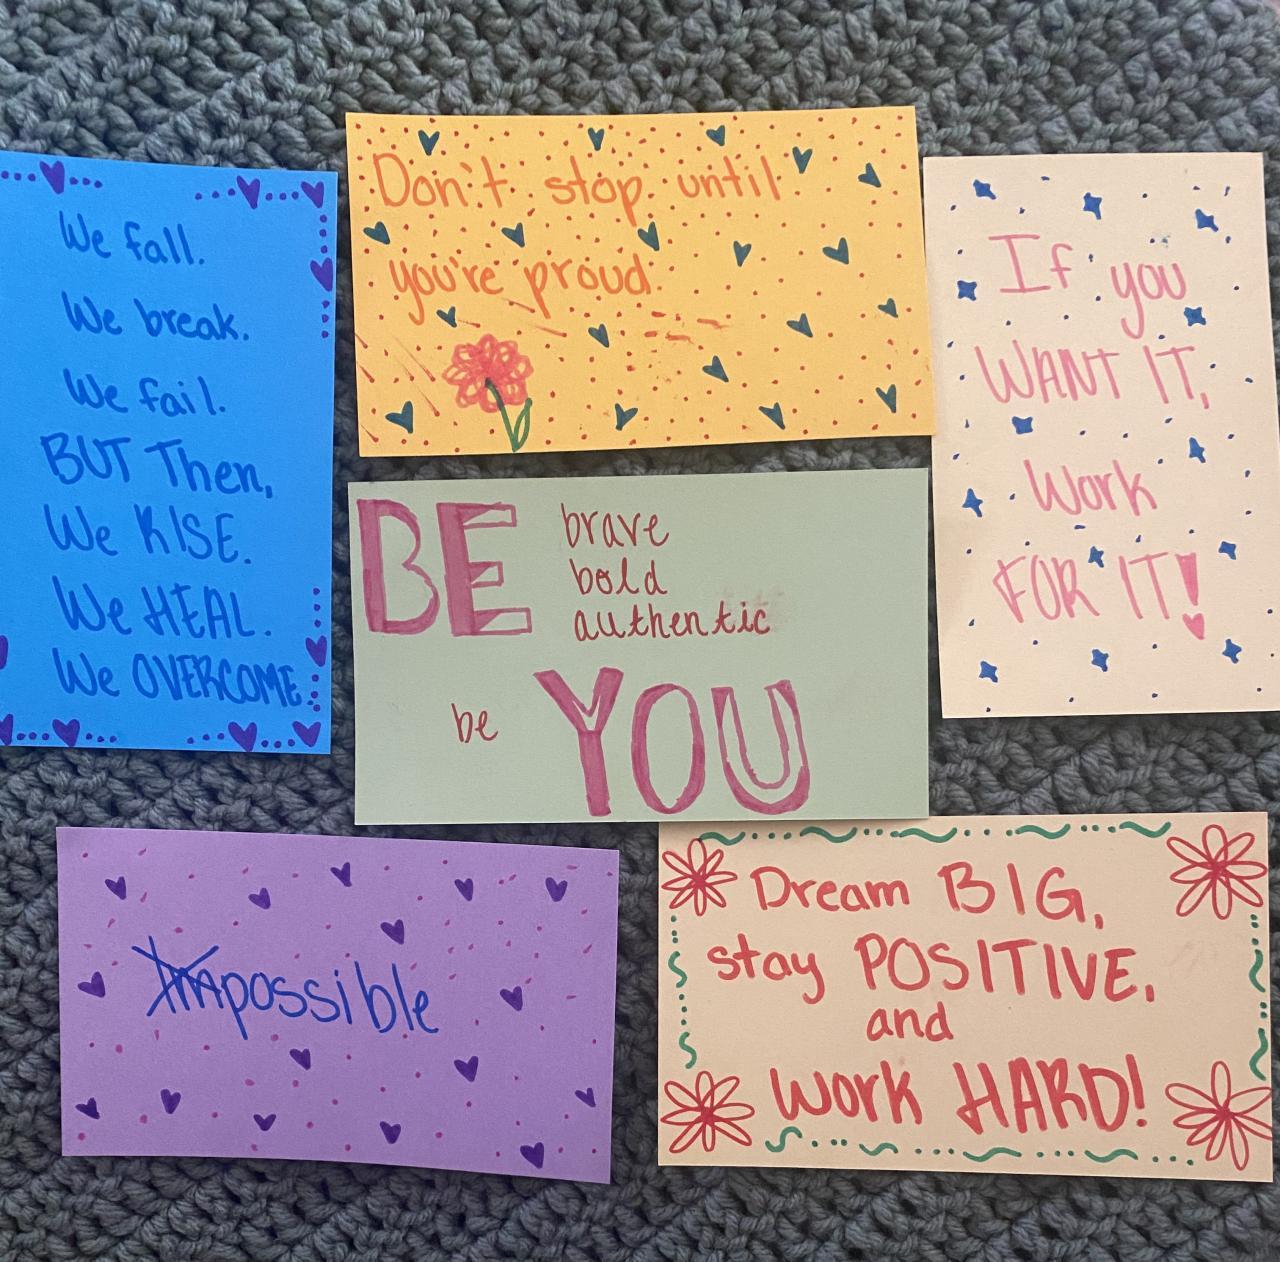 We fall.
We break.
We fail.
BUT Then,
We RISE.
We HEAL.
We OVERCOME.
Don't stop until
you're proud.
If you
WANT IT,
Work
FOR IT!
BE brave
bold
authentic
be YOU
Impossible
Dream BIG,
stay POSITIVE,
and
Work HARD!